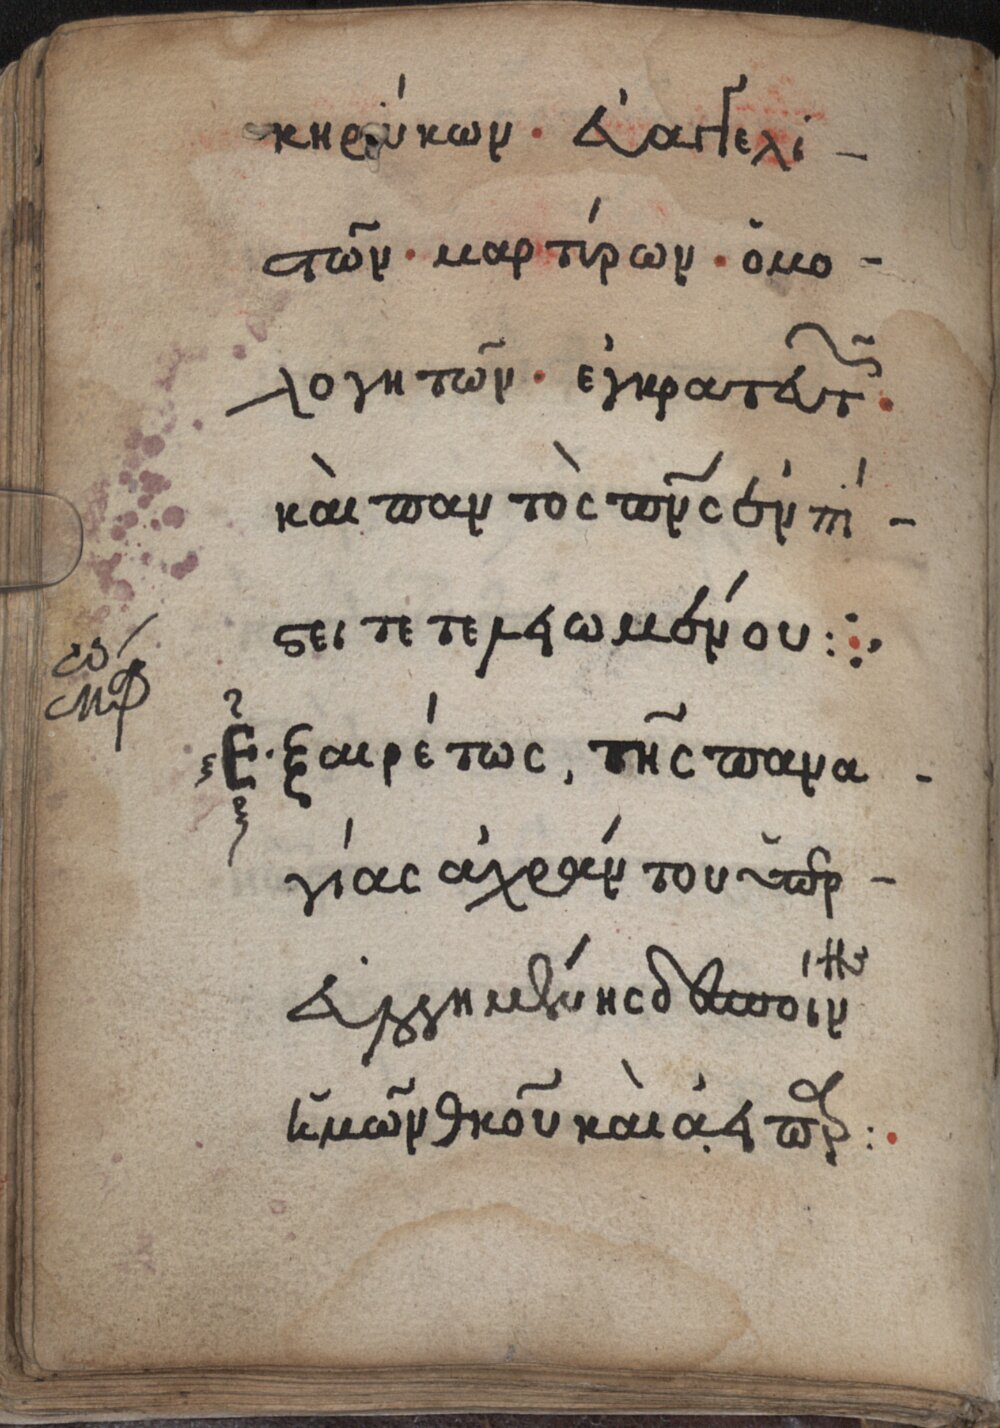 κηρύκων · εὐαγγελι-
στῶν · μαρτίρων · ὁμο-
λογητῶν · ἐγκρατευτῶν ·
καὶ παντὸς πν̅ς ἐν πί-
στει τετελειωμένου :
Ἐξαιρέτως, τῆς πανα-
γίας ἀχράντου ὑπερ-
ευλογημένης δεσποίνης
ἡμῶν θκου καὶ ἀειπαρ :